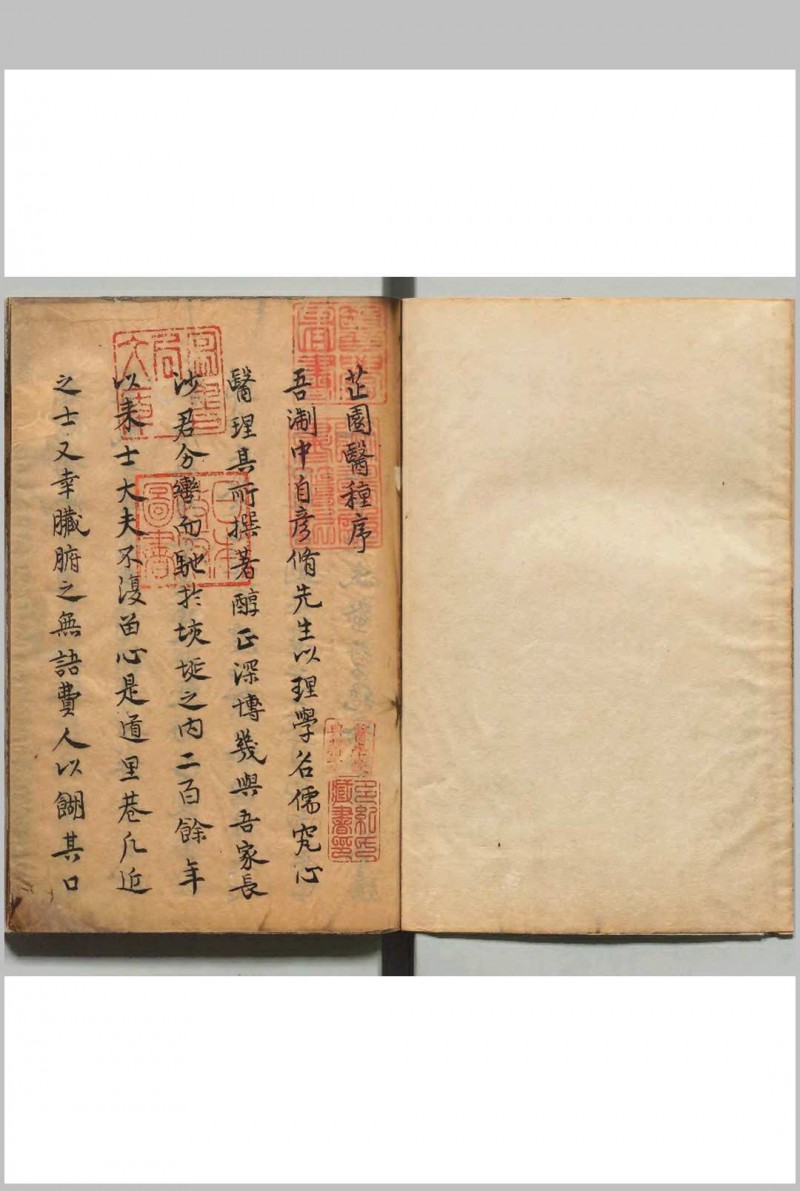 芷園醫種序
吾淛中自彦脩先生以理學名儒究心
醫理其所撰著醇正深博幾與吾家長
沙君分鑣而馳於垓埏之內二百餘年
以来士大夫不復留心是道里巷凡近
之士又幸臟腑之無語費人以餬其口
日本
政府
圖書
藏書